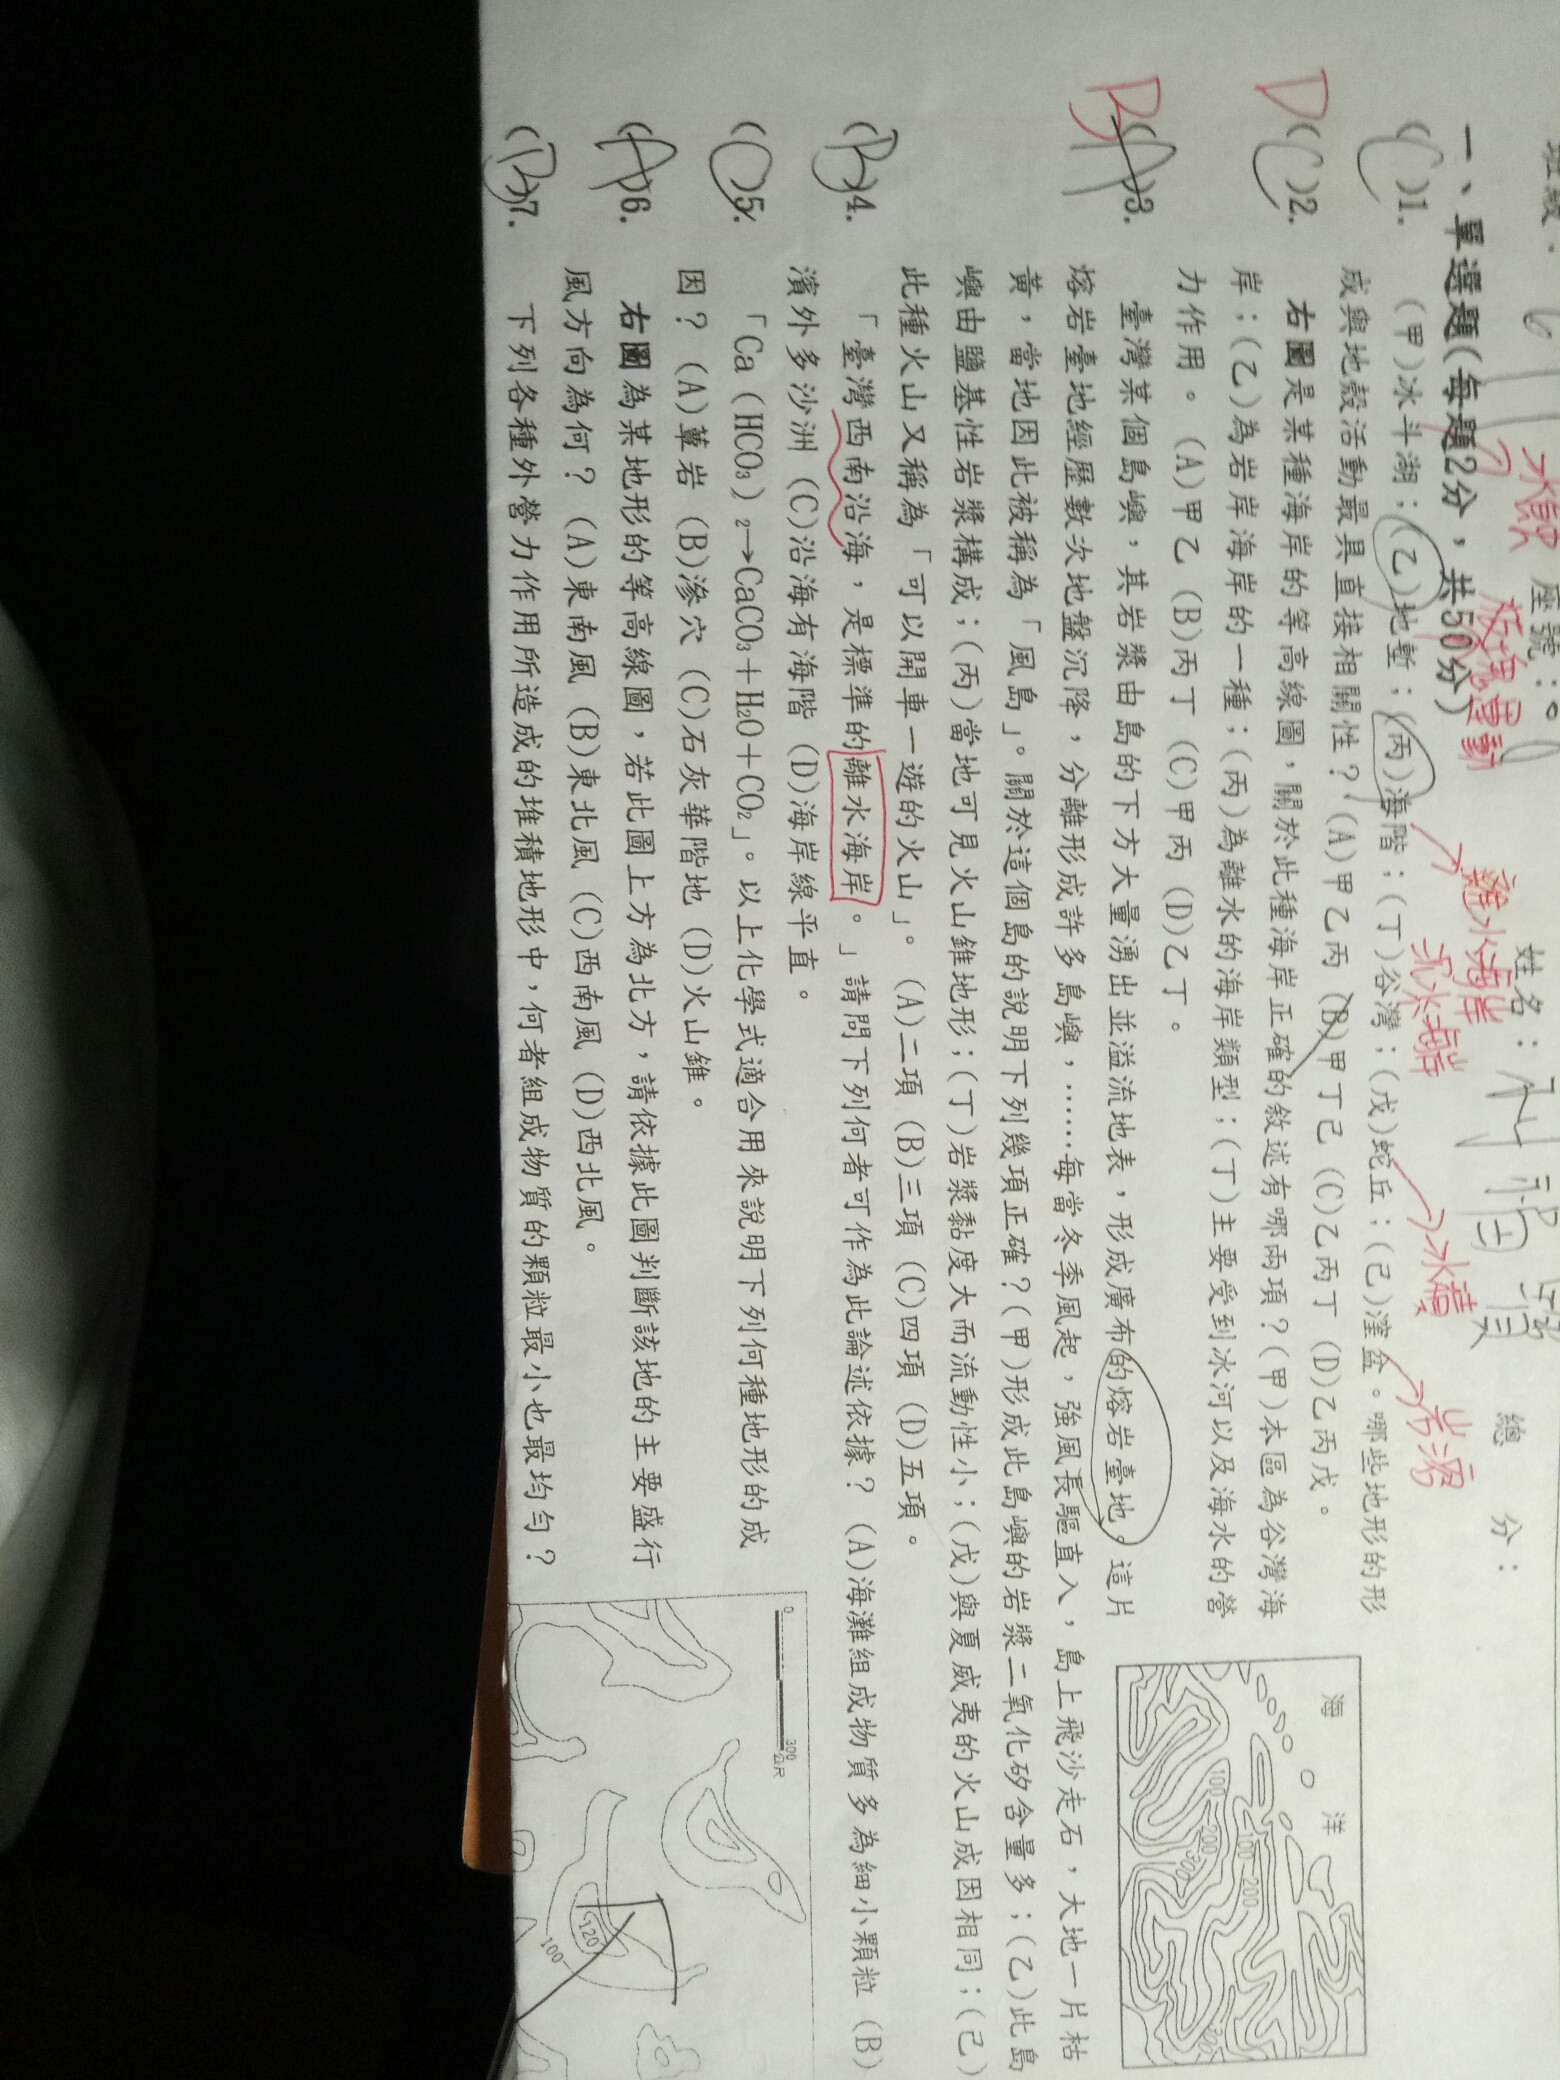 班級：
座號：
姓名：
總 分：
一、單選題(每題2分，共50分)
板塊運動
離水海岸
沉水海岸
冰積
岩溶
(C)1. (甲)冰斗湖；(乙)地塹；(丙)海階；(丁)谷灣；(戊)蛇丘；(己)窪盆。哪些地形的形
成與地殼活動最具直接相關性？(A)甲乙丙 (B)甲丁己 (C)乙丙丁 (D)乙丙戊。
D(C)2. 右圖是某種海岸的等高線圖，關於此種海岸正確的敘述有哪兩項？(甲)本區為谷灣海
岸；(乙)為岩岸海岸的一種；(丙)為離水的海岸類型；(丁)主要受到冰河以及海水的營
力作用。 (A)甲乙 (B)丙丁 (C)甲丙 (D)乙丁。
B(A)3. 臺灣某個島嶼，其岩漿由島的下方大量湧出並溢流地表，形成廣布的熔岩臺地。這片
熔岩臺地經歷數次地盤沉降，分離形成許多島嶼，……每當冬季風起，強風長驅直入，島上飛沙走石，大地一片枯
黃，當地因此被稱為「風島」。關於這個島的說明下列幾項正確？(甲)形成此島嶼的岩漿二氧化矽含量多；(乙)此島
嶼由鹽基性岩漿構成；(丙)當地可見火山錐地形；(丁)岩漿黏度大而流動性小；(戊)與夏威夷的火山成因相同；(己)
此種火山又稱為「可以開車一遊的火山」。 (A)二項 (B)三項 (C)四項 (D)五項。
(B)4. 「臺灣西南沿海，是標準的離水海岸。」請問下列何者可作為此論述依據？ (A)海灘組成物質多為細小顆粒 (B)
濱外多沙洲 (C)沿海有海階 (D)海岸線平直。
(C)5. 「Ca（HCO₃）₂→CaCO₃＋H₂O＋CO₂」。以上化學式適合用來說明下列何種地形的成
因？ (A)蕈岩 (B)滲穴 (C)石灰華階地 (D)火山錐。
(A)6. 右圖為某地形的等高線圖，若此圖上方為北方，請依據此圖判斷該地的主要盛行
風方向為何？ (A)東南風 (B)東北風 (C)西南風 (D)西北風。
(B)7. 下列各種外營力作用所造成的堆積地形中，何者組成物質的顆粒最小也最均勻？
海 洋
100
200
300
100
200
0 300
公尺
120
100